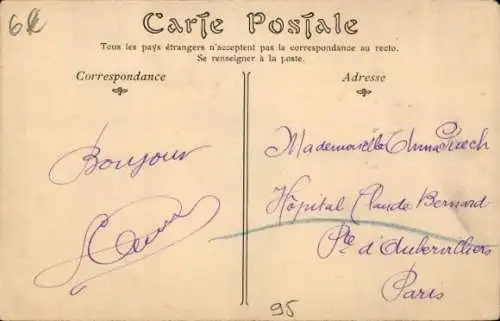 6€
Carte Postale
Tous les pays étrangers n'acceptent pas la correspondance au recto.
Se renseigner à la poste.
Correspondance
Adresse
Bonjour
Mademoiselle Anna Puech
Hôpital Claude Bernard
Pte d'Aubervilliers
Paris
95